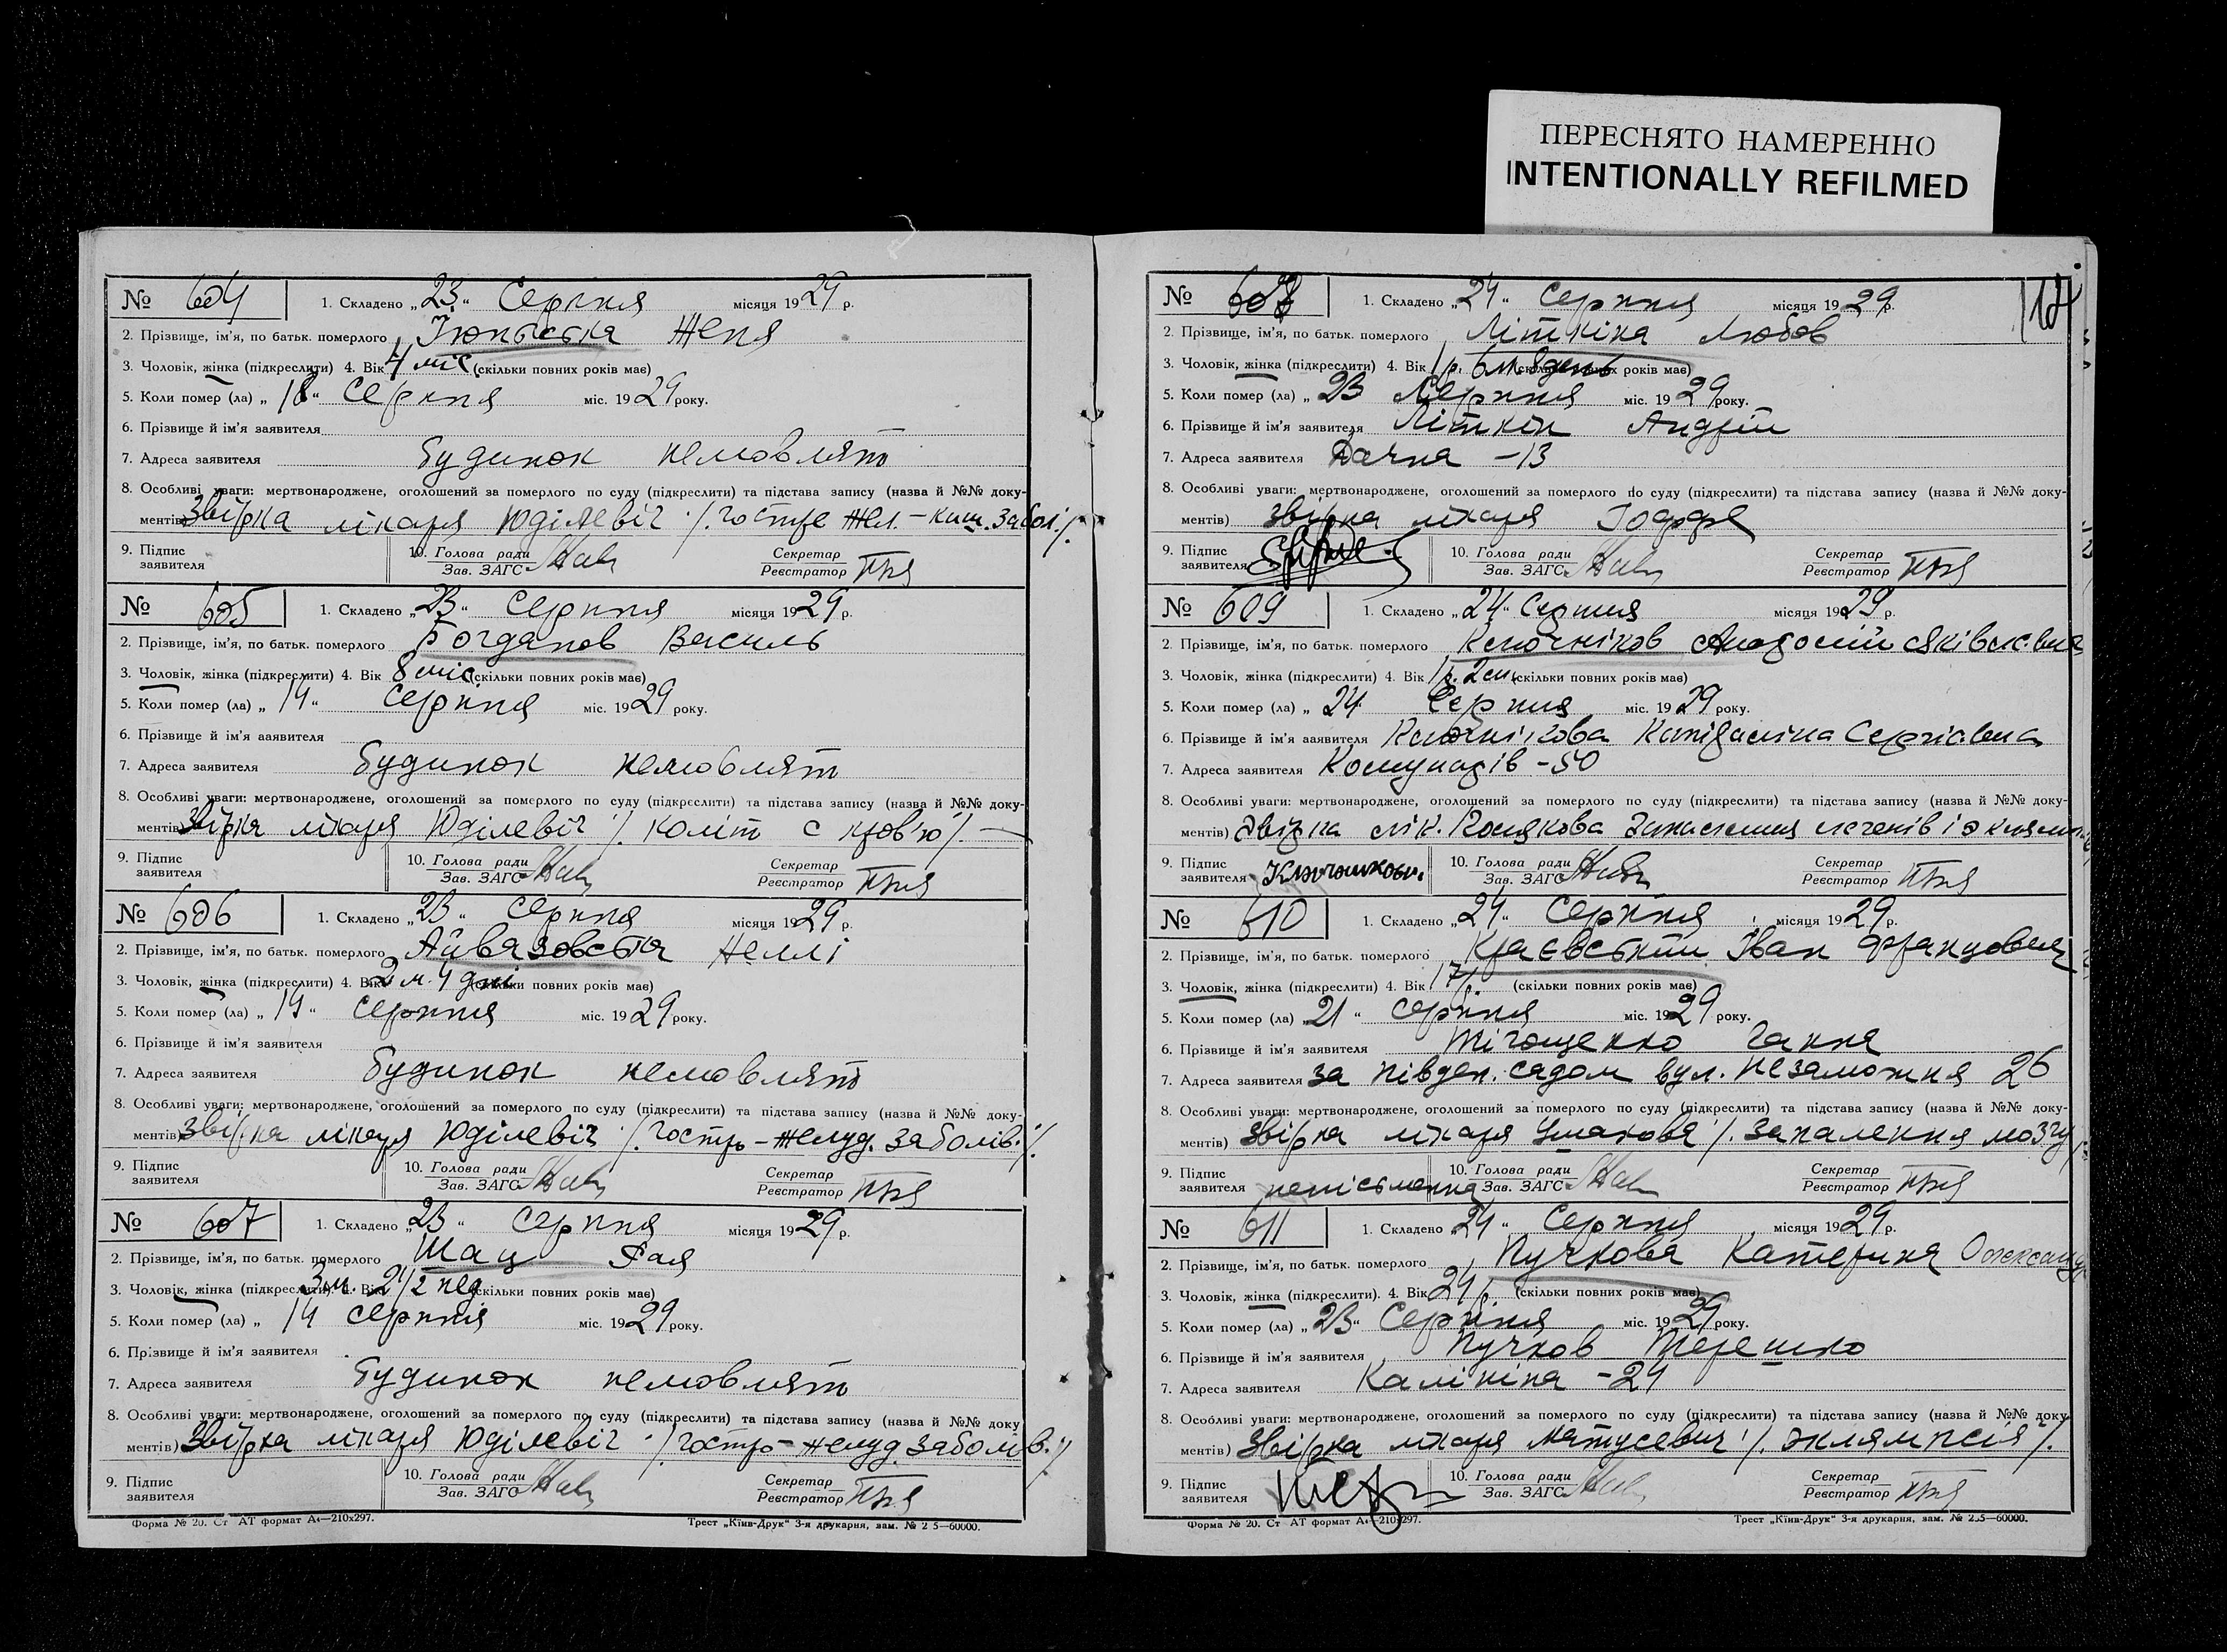 ПЕРЕСНЯТО НАМЕРЕННО
INTENTIONALLY REFILMED
№ 604 1. Складено „23“ Серпня місяця 1929 р.
2. Прізвище, ім'я, по батьк. померлого Женя
3. Чоловік, жінка (підкреслити) 4. Вік 4 міс (скільки повних років має)
5. Коли помер (ла) „18“ Серпня міс. 1929 року.
6. Прізвище й ім'я заявителя
7. Адреса заявителя Будинок немовлят
8. Особливі уваги: мертвонароджене, оголошений за померлого по суду (підкреслити) та підстава запису (назва й №№ доку-
ментів) Звірка лікаря Юділевіч /. гостре жел.-киш. забол. /.
9. Підпис заявителя 10. Голова ради Зав. ЗАГС Секретар Реєстратор
№ 605 1. Складено „23“ Серпня місяця 1929 р.
2. Прізвище, ім'я, по батьк. померлого Богданов Василь
3. Чоловік, жінка (підкреслити) 4. Вік 8 міс (скільки повних років має)
5. Коли помер (ла) „19“ Серпня міс. 1929 року.
6. Прізвище й ім'я заявителя
7. Адреса заявителя Будинок немовлят
8. Особливі уваги: мертвонароджене, оголошений за померлого по суду (підкреслити) та підстава запису (назва й №№ доку-
ментів) Звірка лікаря Юділевіч /. Коліт с кров'ю /.
9. Підпис заявителя 10. Голова ради Зав. ЗАГС Секретар Реєстратор
№ 606 1. Складено „23“ Серпня місяця 1929 р.
2. Прізвище, ім'я, по батьк. померлого Айвазовська Неллі
3. Чоловік, жінка (підкреслити) 4. Вік 2 м. 4 дні (скільки повних років має)
5. Коли помер (ла) „19“ Серпня міс. 1929 року.
6. Прізвище й ім'я заявителя
7. Адреса заявителя Будинок немовлят
8. Особливі уваги: мертвонароджене, оголошений за померлого по суду (підкреслити) та підстава запису (назва й №№ доку-
ментів) Звірка лікаря Юділевіч /. гостро-желуд. заболів. /.
9. Підпис заявителя 10. Голова ради Зав. ЗАГС Секретар Реєстратор
№ 607 1. Складено „23“ Серпня місяця 1929 р.
2. Прізвище, ім'я, по батьк. померлого Шац Рая
3. Чоловік, жінка (підкреслити) 4. Вік 3 м. 2 1/2 нед (скільки повних років має)
5. Коли помер (ла) „19 Серпня міс. 1929 року.
6. Прізвище й ім'я заявителя
7. Адреса заявителя Будинок немовлят
8. Особливі уваги: мертвонароджене, оголошений за померлого по суду (підкреслити) та підстава запису (назва й №№ доку
ментів) Звірка лікаря Юділевіч /. гостро-желуд. заболів. /.
9. Підпис заявителя 10. Голова ради Зав. ЗАГС Секретар Реєстратор
Форма № 20. Ст АТ формат А4—210х297. Трест „Київ-Друк“ 3-я друкарня, зам. № 2 5—60000.
№ 608 1. Складено „24“ Серпня місяця 1929 р.
2. Прізвище, ім'я, по батьк. померлого Літкіна Любов
3. Чоловік, жінка (підкреслити) 4. Вік 1 р. 6 м. день (скільки повних років має)
5. Коли помер (ла) „23 Серпня міс. 1929 року.
6. Прізвище й ім'я заявителя Літкін Андрій
7. Адреса заявителя Дачна -13
8. Особливі уваги: мертвонароджене, оголошений за померлого по суду (підкреслити) та підстава запису (назва й №№ доку-
ментів) Звірка лікаря Іоффя
9. Підпис заявителя 10. Голова ради Зав. ЗАГС Секретар Реєстратор
№ 609 1. Складено „24“ Серпня місяця 1929 р.
2. Прізвище, ім'я, по батьк. померлого Ключніков
3. Чоловік, жінка (підкреслити) 4. Вік 1 р. 2 м. (скільки повних років має)
5. Коли помер (ла) „24 Серпня міс. 1929 року.
6. Прізвище й ім'я заявителя Ключнікова Капідаліна Сергієвна
7. Адреса заявителя Комунарів -50
8. Особливі уваги: мертвонароджене, оголошений за померлого по суду (підкреслити) та підстава запису (назва й №№ доку-
ментів) Звірка лік. Запалення легенів і
9. Підпис заявителя Ключникови 10. Голова ради Зав. ЗАГС Секретар Реєстратор
№ 610 1. Складено „24“ Серпня місяця 1929 р.
2. Прізвище, ім'я, по батьк. померлого Краєвський Іван Францович
3. Чоловік, жінка (підкреслити) 4. Вік 17 р. (скільки повних років має)
5. Коли помер (ла) „21“ Серпня міс. 1929 року.
6. Прізвище й ім'я заявителя Ганна
7. Адреса заявителя за півден. садом вул. Незаможня 26
8. Особливі уваги: мертвонароджене, оголошений за померлого по суду (підкреслити) та підстава запису (назва й №№ доку-
ментів) Звірка лікаря Ушакова /. Запалення мозгу
9. Підпис заявителя неписьменна 10. Голова ради Зав. ЗАГС Секретар Реєстратор
№ 611 1. Складено „24“ Серпня місяця 1929 р.
2. Прізвище, ім'я, по батьк. померлого Пучкова Катерина Олександр
3. Чоловік, жінка (підкреслити). 4. Вік 24 р. (скільки повних років має)
5. Коли помер (ла) „23“ Серпня міс. 1929 року.
6. Прізвище й ім'я заявителя Пучков Терешко
7. Адреса заявителя Калініна -24
8. Особливі уваги: мертвонароджене, оголошений за померлого по суду (підкреслити) та підстава запису (назва й №№ доку
ментів) Звірка лікаря Матусевич /. эклямпсія /.
9. Підпис заявителя 10. Голова ради Зав. ЗАГС Секретар Реєстратор
Форма № 20. Ст АТ формат А4—210х297. Трест „Київ-Друк“ 3-я друкарня, зам. № 235—60000.